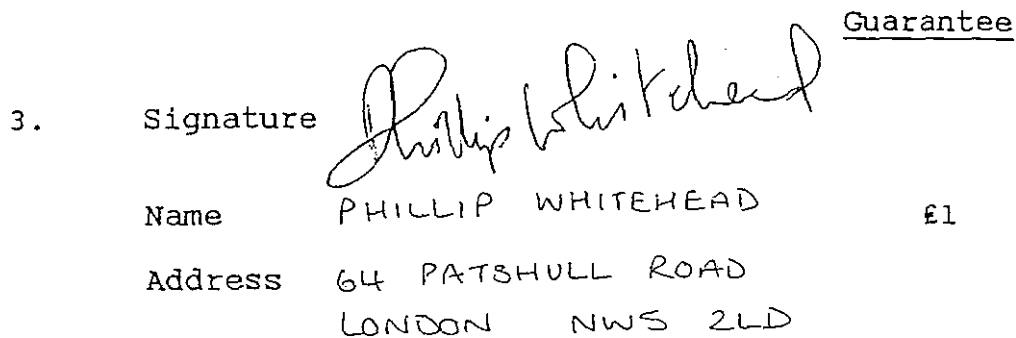 Guarantee
3. Signature Phillip Whitehead
Name PHILLIP WHITEHEAD £1
Address 64 PATSHULL ROAD
LONDON NW5 2LD